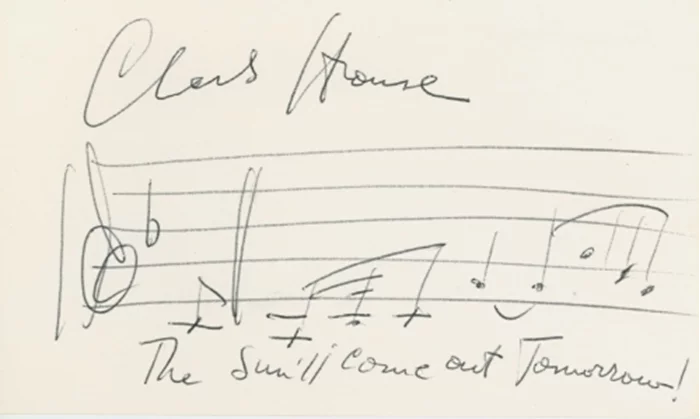 Charles Strouse
The Sun'll come out Tomorrow!